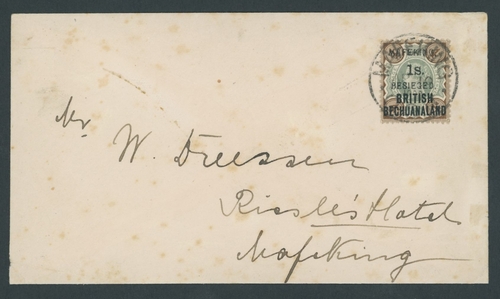 MAFEKING,
1s.
BESIEGED.
BRITISH
BECHUANALAND
MAFEKING
Mr W. Dreessen
Riesle's Hotel
Mafeking